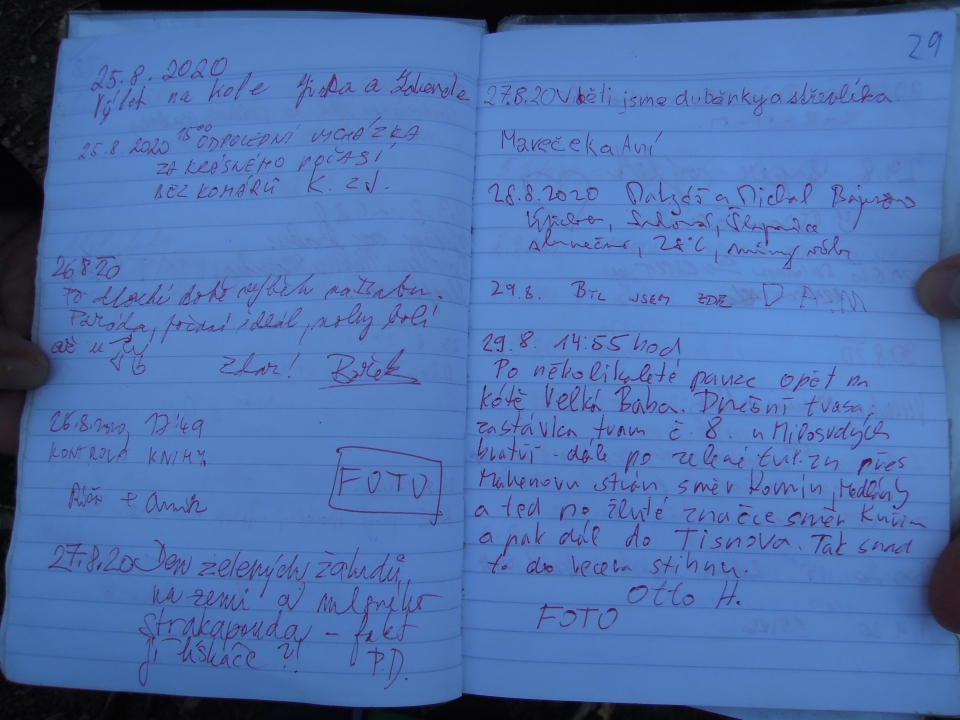 25.8.2020
Výlet na kole Jirka a Zdenda
25.8 2020 15⁰⁰ ODPOLEDNÍ VYCHÁZKA
ZA KRÁSNÉHO POČASÍ
BEZ KOMÁRŮ K. z J.
26.8.20
Po dlouhé době výběh na Babu.
Paráda, počasí ideál, nohy bolí
až u
Zdar! Bořek
26.8.2020 17:49
KONTROLA KNIHY
FOTO
27.8.20 Den zelených žaludů,
na zemi a
strakapouda – fakt
jí šiškáče ?! P.D.
29
27.8.20 Viděli jsme duběnky a střevlíka
Mareček a Aní
28.8.2020 a Michal
slunečno, 28°C,
29.8. BYL JSEM ZDE D A M
29.8. 14:55 hod
Po několikaleté pauze opět na
kótě Velká Baba. Dnešní trasa:
zastávka tram č. 8. u Milosrdných
bratří - dále po zelené tur. zn přes
Mahenovu stráň směr Komín, Medlánky
a teď po žluté značce směr Kuřim
a pak dál do Tišnova. Tak snad
to do večera stihnu.
Otto H.
FOTO